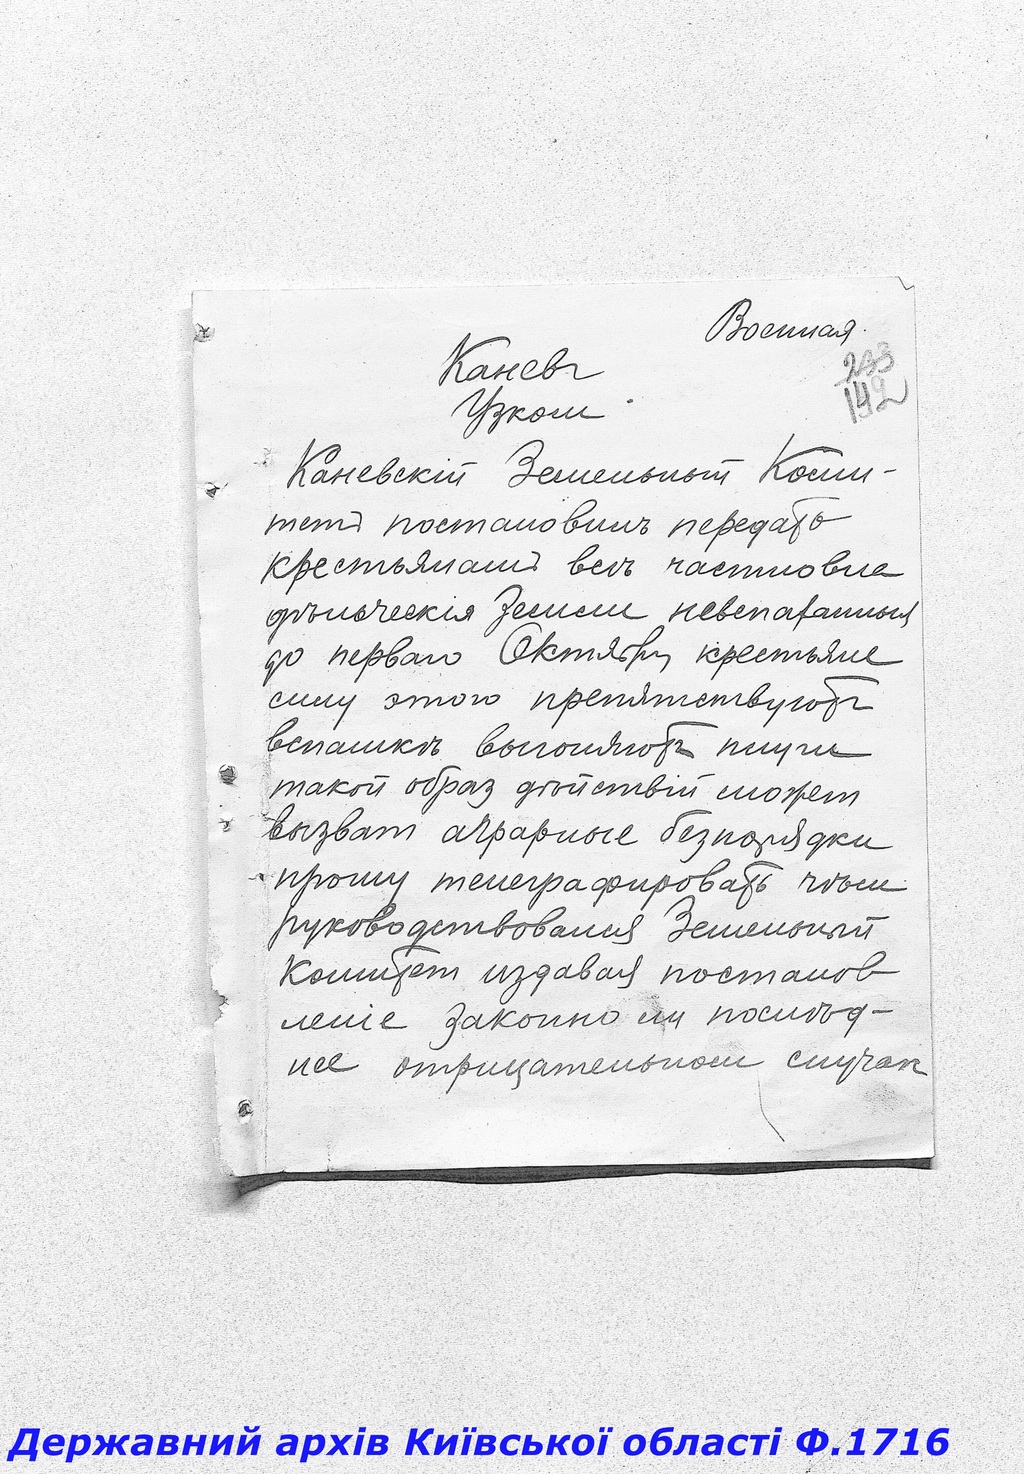 Военная.
233
142
Каневъ
Узком
Каневскій Земельный Коми-
тетъ постановилъ передать
крестьянамъ всѣ частновла
дѣльческія Земли невспаханныя
до перваго Октября крестьяне
силу этого препятствуютъ
вспашкѣ выгоняютъ плуги
такой образ дѣйствій может
вызват аграрные безпорядки
прошу телеграфировать чѣм
руководствовался Земельный
Комитет издавая постанов
леніе законно ли послѣд-
нее отрицательном случаѣ
Державний архів Київської області Ф.1716